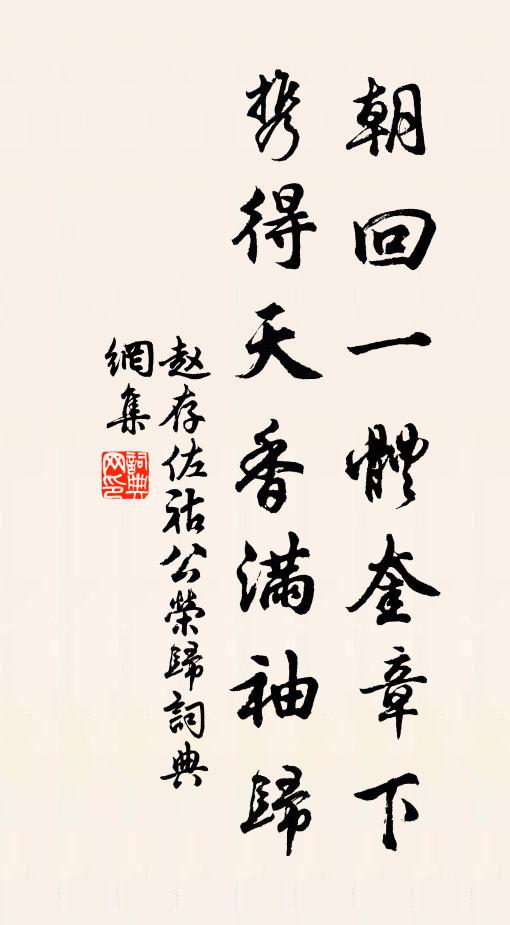 朝回一體奎章下
携得天香滿袖歸
赵存佐祜公榮歸詞典
網集
詞典網印